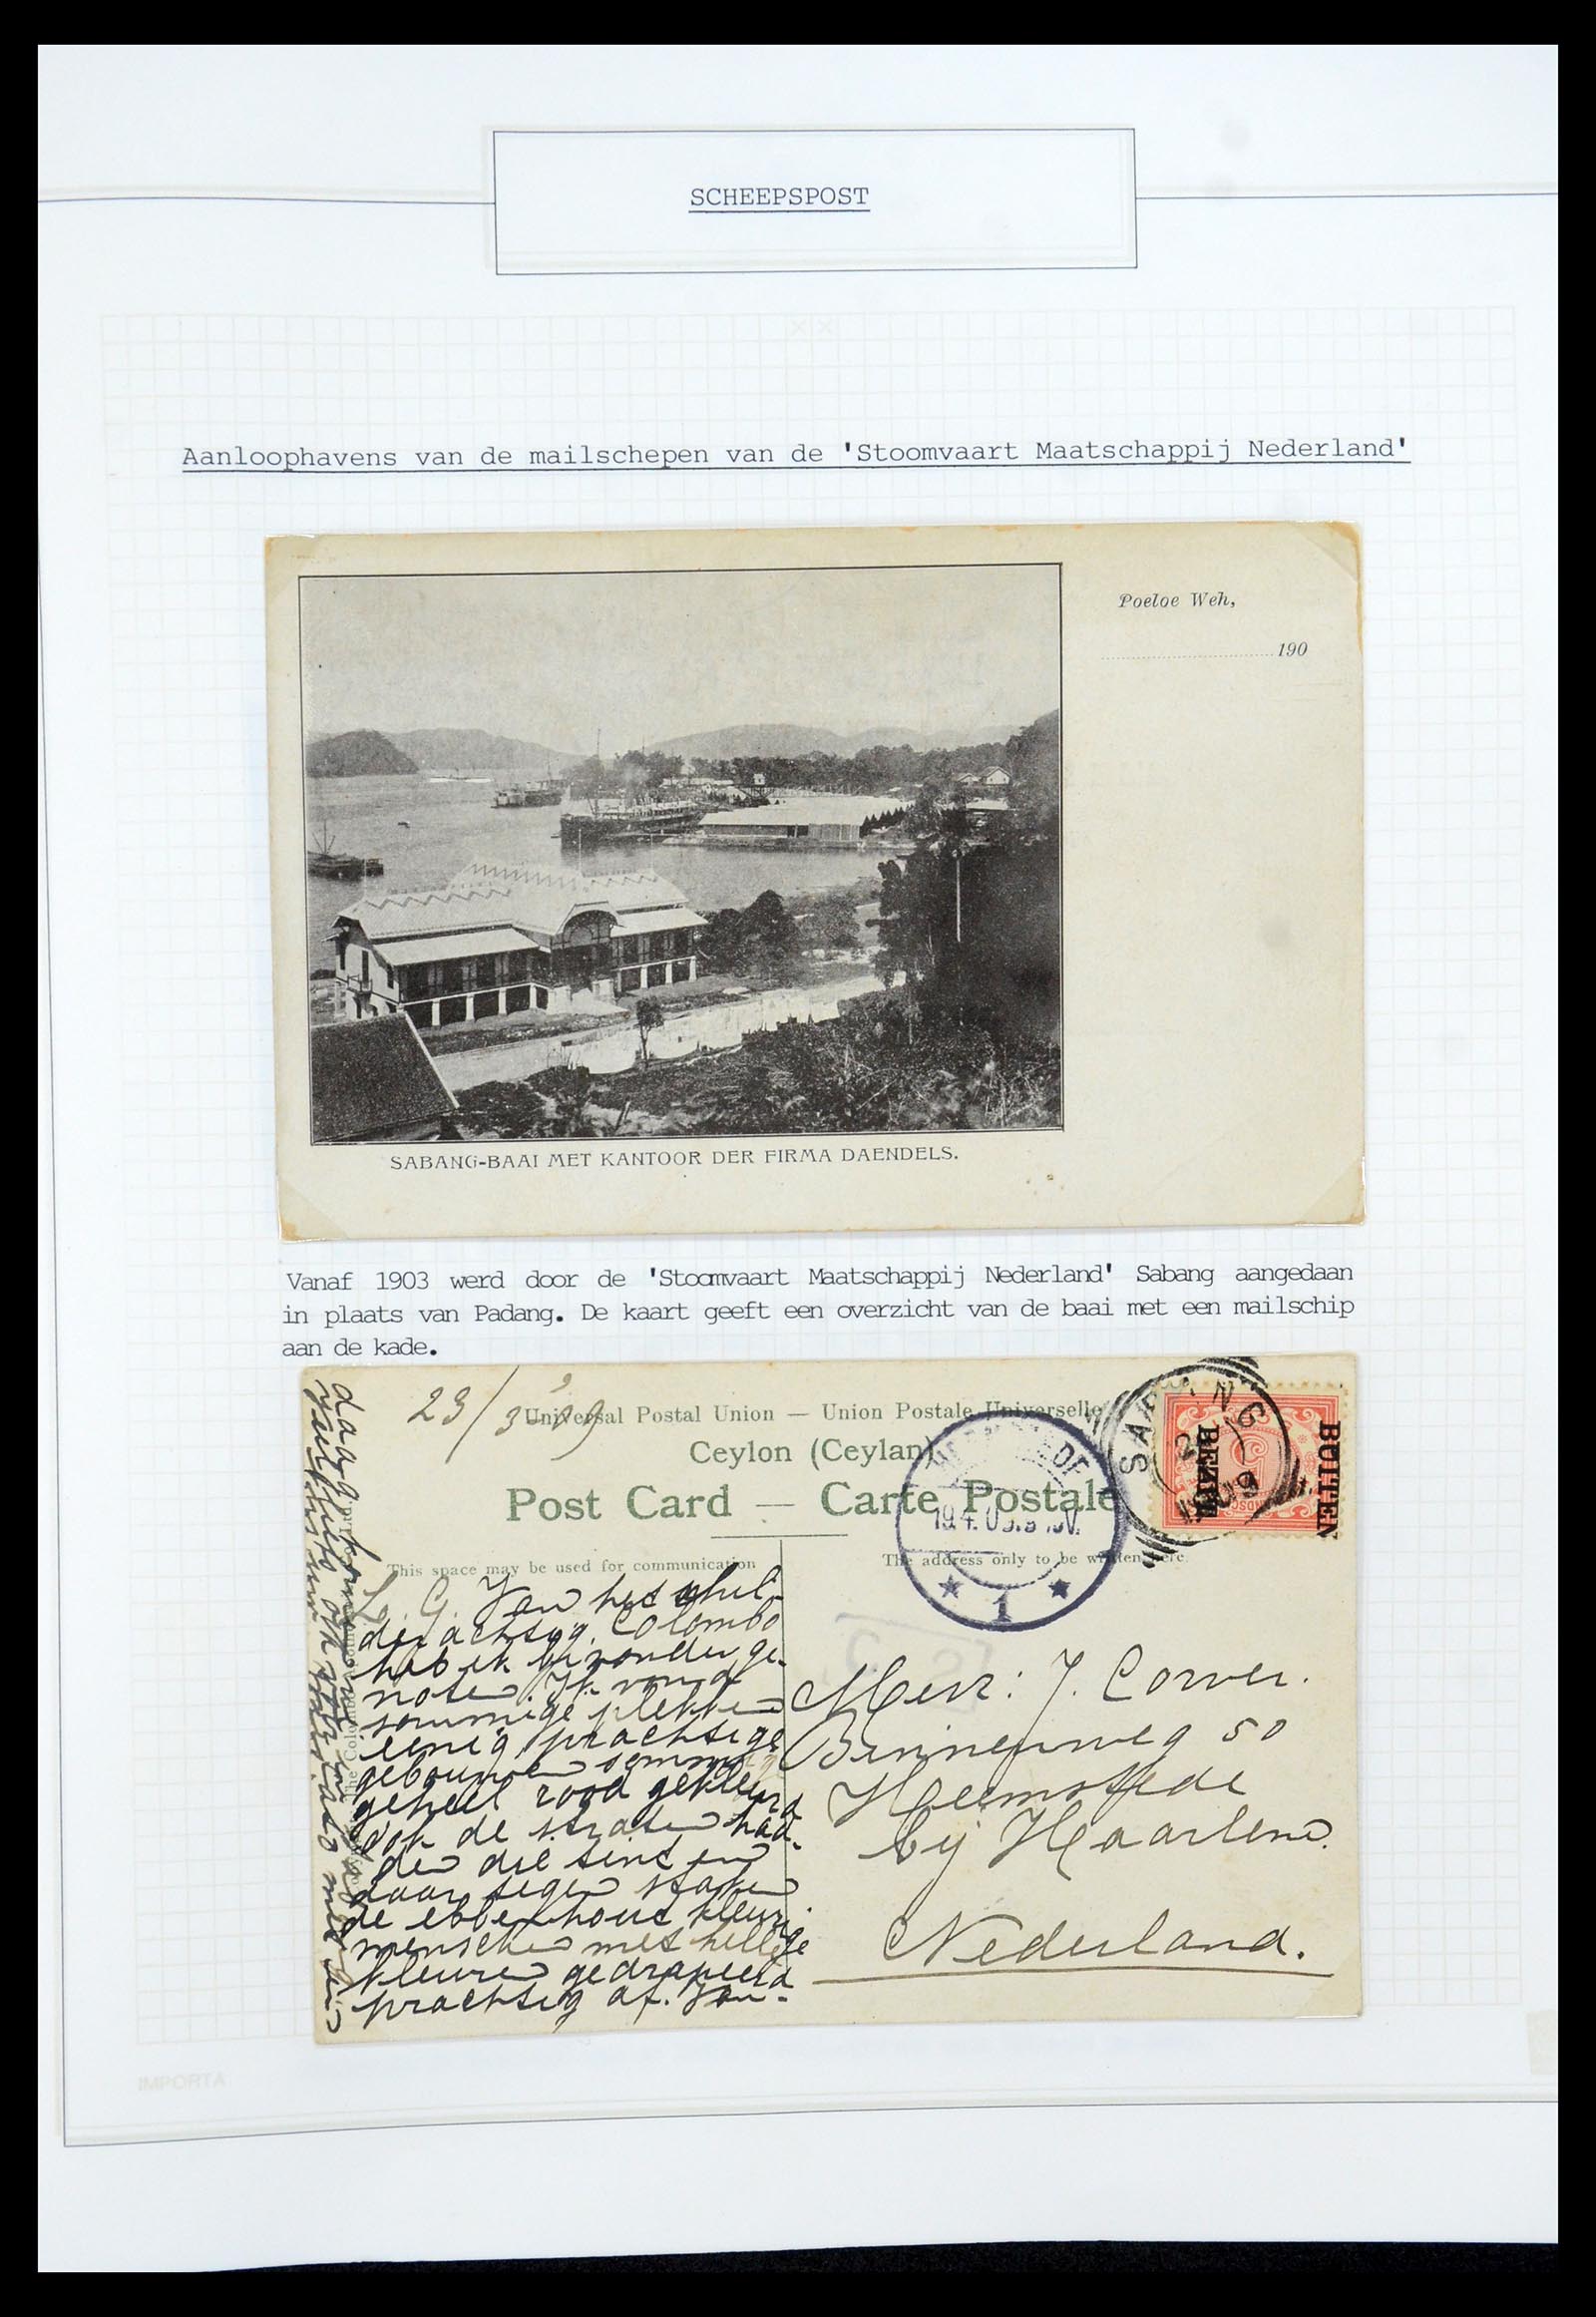 SCHEEPSPOST
Aanloophavens van de mailschepen van de 'Stoomvaart Maatschappij Nederland'
Poeloe Weh,
190
SABANG-BAAI MET KANTOOR DER FIRMA DAENDELS.
Vanaf 1903 werd door de 'Stoomvaart Maatschappij Nederland' Sabang aangedaan
in plaats van Padang. De kaart geeft een overzicht van de baai met een mailschip
aan de kade.
23/3-09
Universal Postal Union — Union Postale Universelle
Ceylon (Ceylan)
Post Card — Carte Postale
BUITEN
BEZIT
This space may be used for communication
The address only to be written here.
L. G. Van het schil-
derachtige Colombo
heb ik bizonder ge-
noten. Ik vond
sommige plekken
eenig prachtige
gebouwen sommige
geheel rood gekleurd
ook de straten had-
den die tint en
daar tegen staken
de ebbenhout kleurige
menschen met hellige
kleuren gedrapeerd
prachtig af. Van-
daag
Mevr: J. Corver.
Binnenweg 50
Heemstede
bij Haarlem.
Nederland.
1
IMPORTA